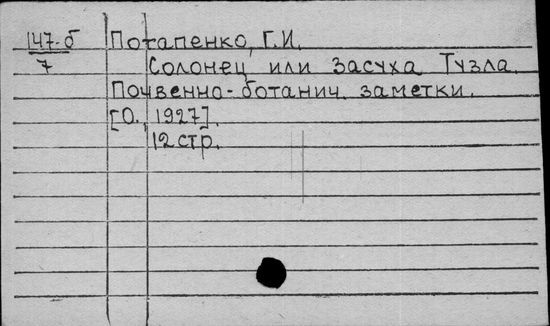 147-б Потапенко, Г.И.
7 Солонец или засуха Тузла.
Почвенно-ботанич. заметки.
[О., 1927].
12 стр.